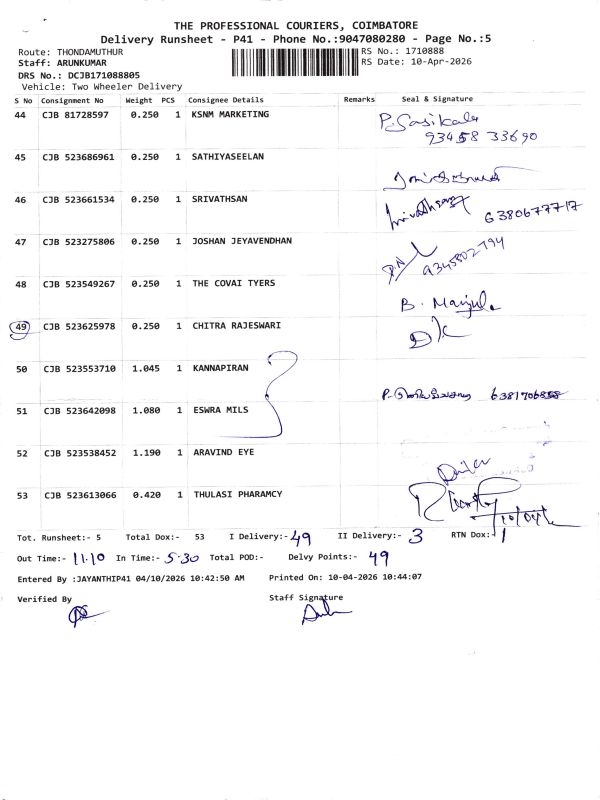 THE PROFESSIONAL COURIERS, COIMBATORE
Delivery Runsheet - P41 - Phone No.:9047080280 - Page No.:5
Route: THONDAMUTHUR
RS No.: 1710888
Staff: ARUNKUMAR
RS Date: 10-Apr-2026
DRS No.: DCJB171088805
Vehicle: Two Wheeler Delivery
S No Consignment No Weight PCS Consignee Details Remarks Seal & Signature
44 CJB 81728597 0.250 1 KSNM MARKETING P. Sasikala
93458 33690
45 CJB 523686961 0.250 1 SATHIYASEELAN
46 CJB 523661534 0.250 1 SRIVATHSAN Srivathsang 6380677717
47 CJB 523275806 0.250 1 JOSHAN JEYAVENDHAN 9345802794
48 CJB 523549267 0.250 1 THE COVAI TYERS B. Manjula
49 CJB 523625978 0.250 1 CHITRA RAJESWARI
50 CJB 523553710 1.045 1 KANNAPIRAN
51 CJB 523642098 1.080 1 ESWRA MILS
52 CJB 523538452 1.190 1 ARAVIND EYE
53 CJB 523613066 0.420 1 THULASI PHARAMCY
Tot. Runsheet:- 5 Total Dox:- 53 I Delivery:- 49 II Delivery:- 3 RTN Dox:- 1
Out Time:- 11.10 In Time:- 5.30 Total POD:- Delvy Points:- 49
Entered By :JAYANTHIP41 04/10/2026 10:42:50 AM Printed On: 10-04-2026 10:44:07
Verified By Staff Signature